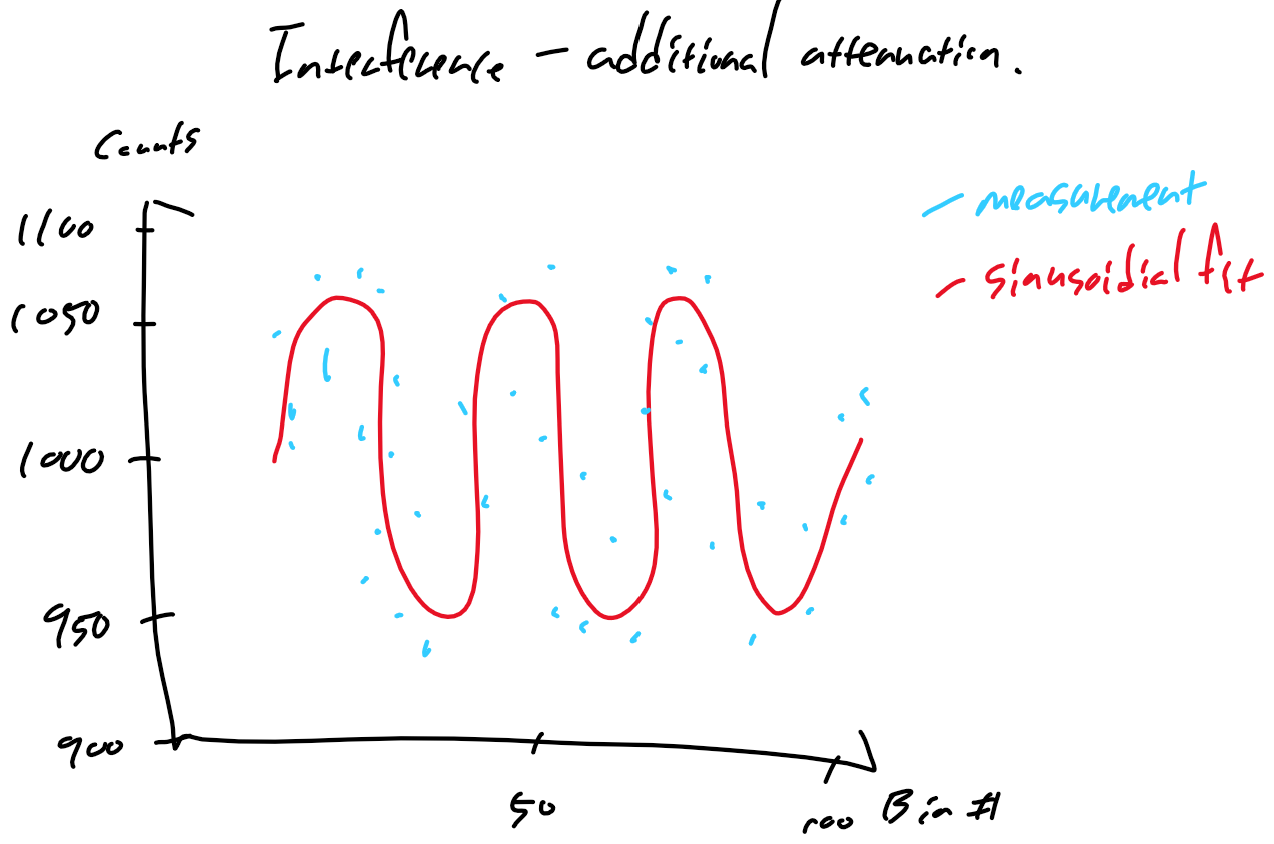 Interference - additional attenuation.
Counts
1100
1050
1000
950
900
50
100
Bin #
measurement
sinusoidial fit